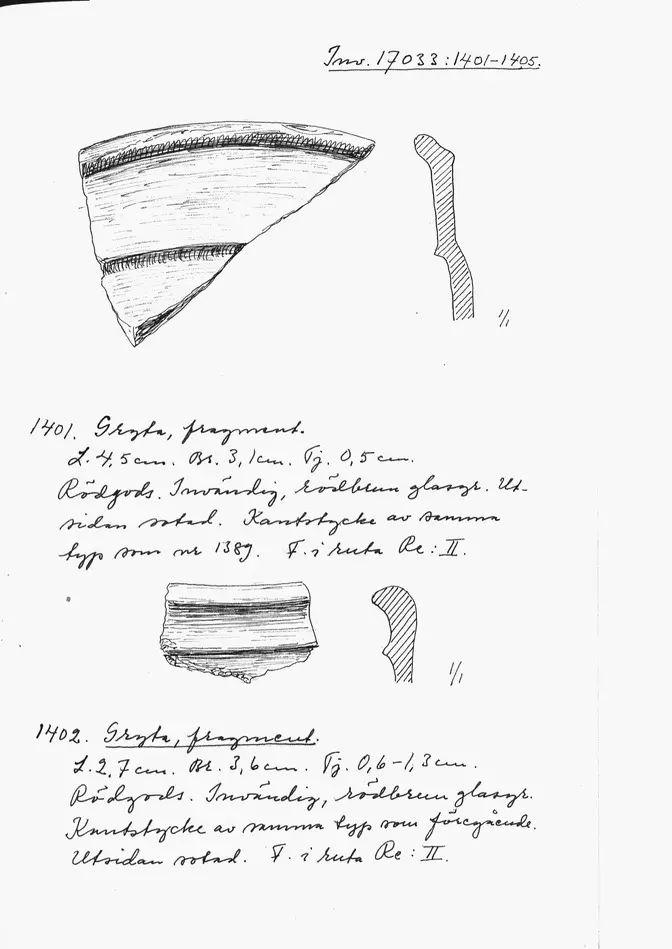 Inv. 17033:1401-1405.
1/1
1401. Gryta, fragment.
L. 4,5 cm. Br. 3,1 cm. Tj. 0,5 cm.
Rödgods. Invändig, rödbrun glasyr. Ut-
sidan sotad. Kantstycke av samma
typ som nr 1389. F. i ruta Re: II.
1/1
1402. Gryta, fragment.
L. 2,7 cm. Br. 3,6 cm. Tj. 0,6-1,3 cm.
Rödgods. Invändig, rödbrun glasyr.
Kantstycke av samma typ som föregående.
Utsidan sotad. F. i ruta Re: II.